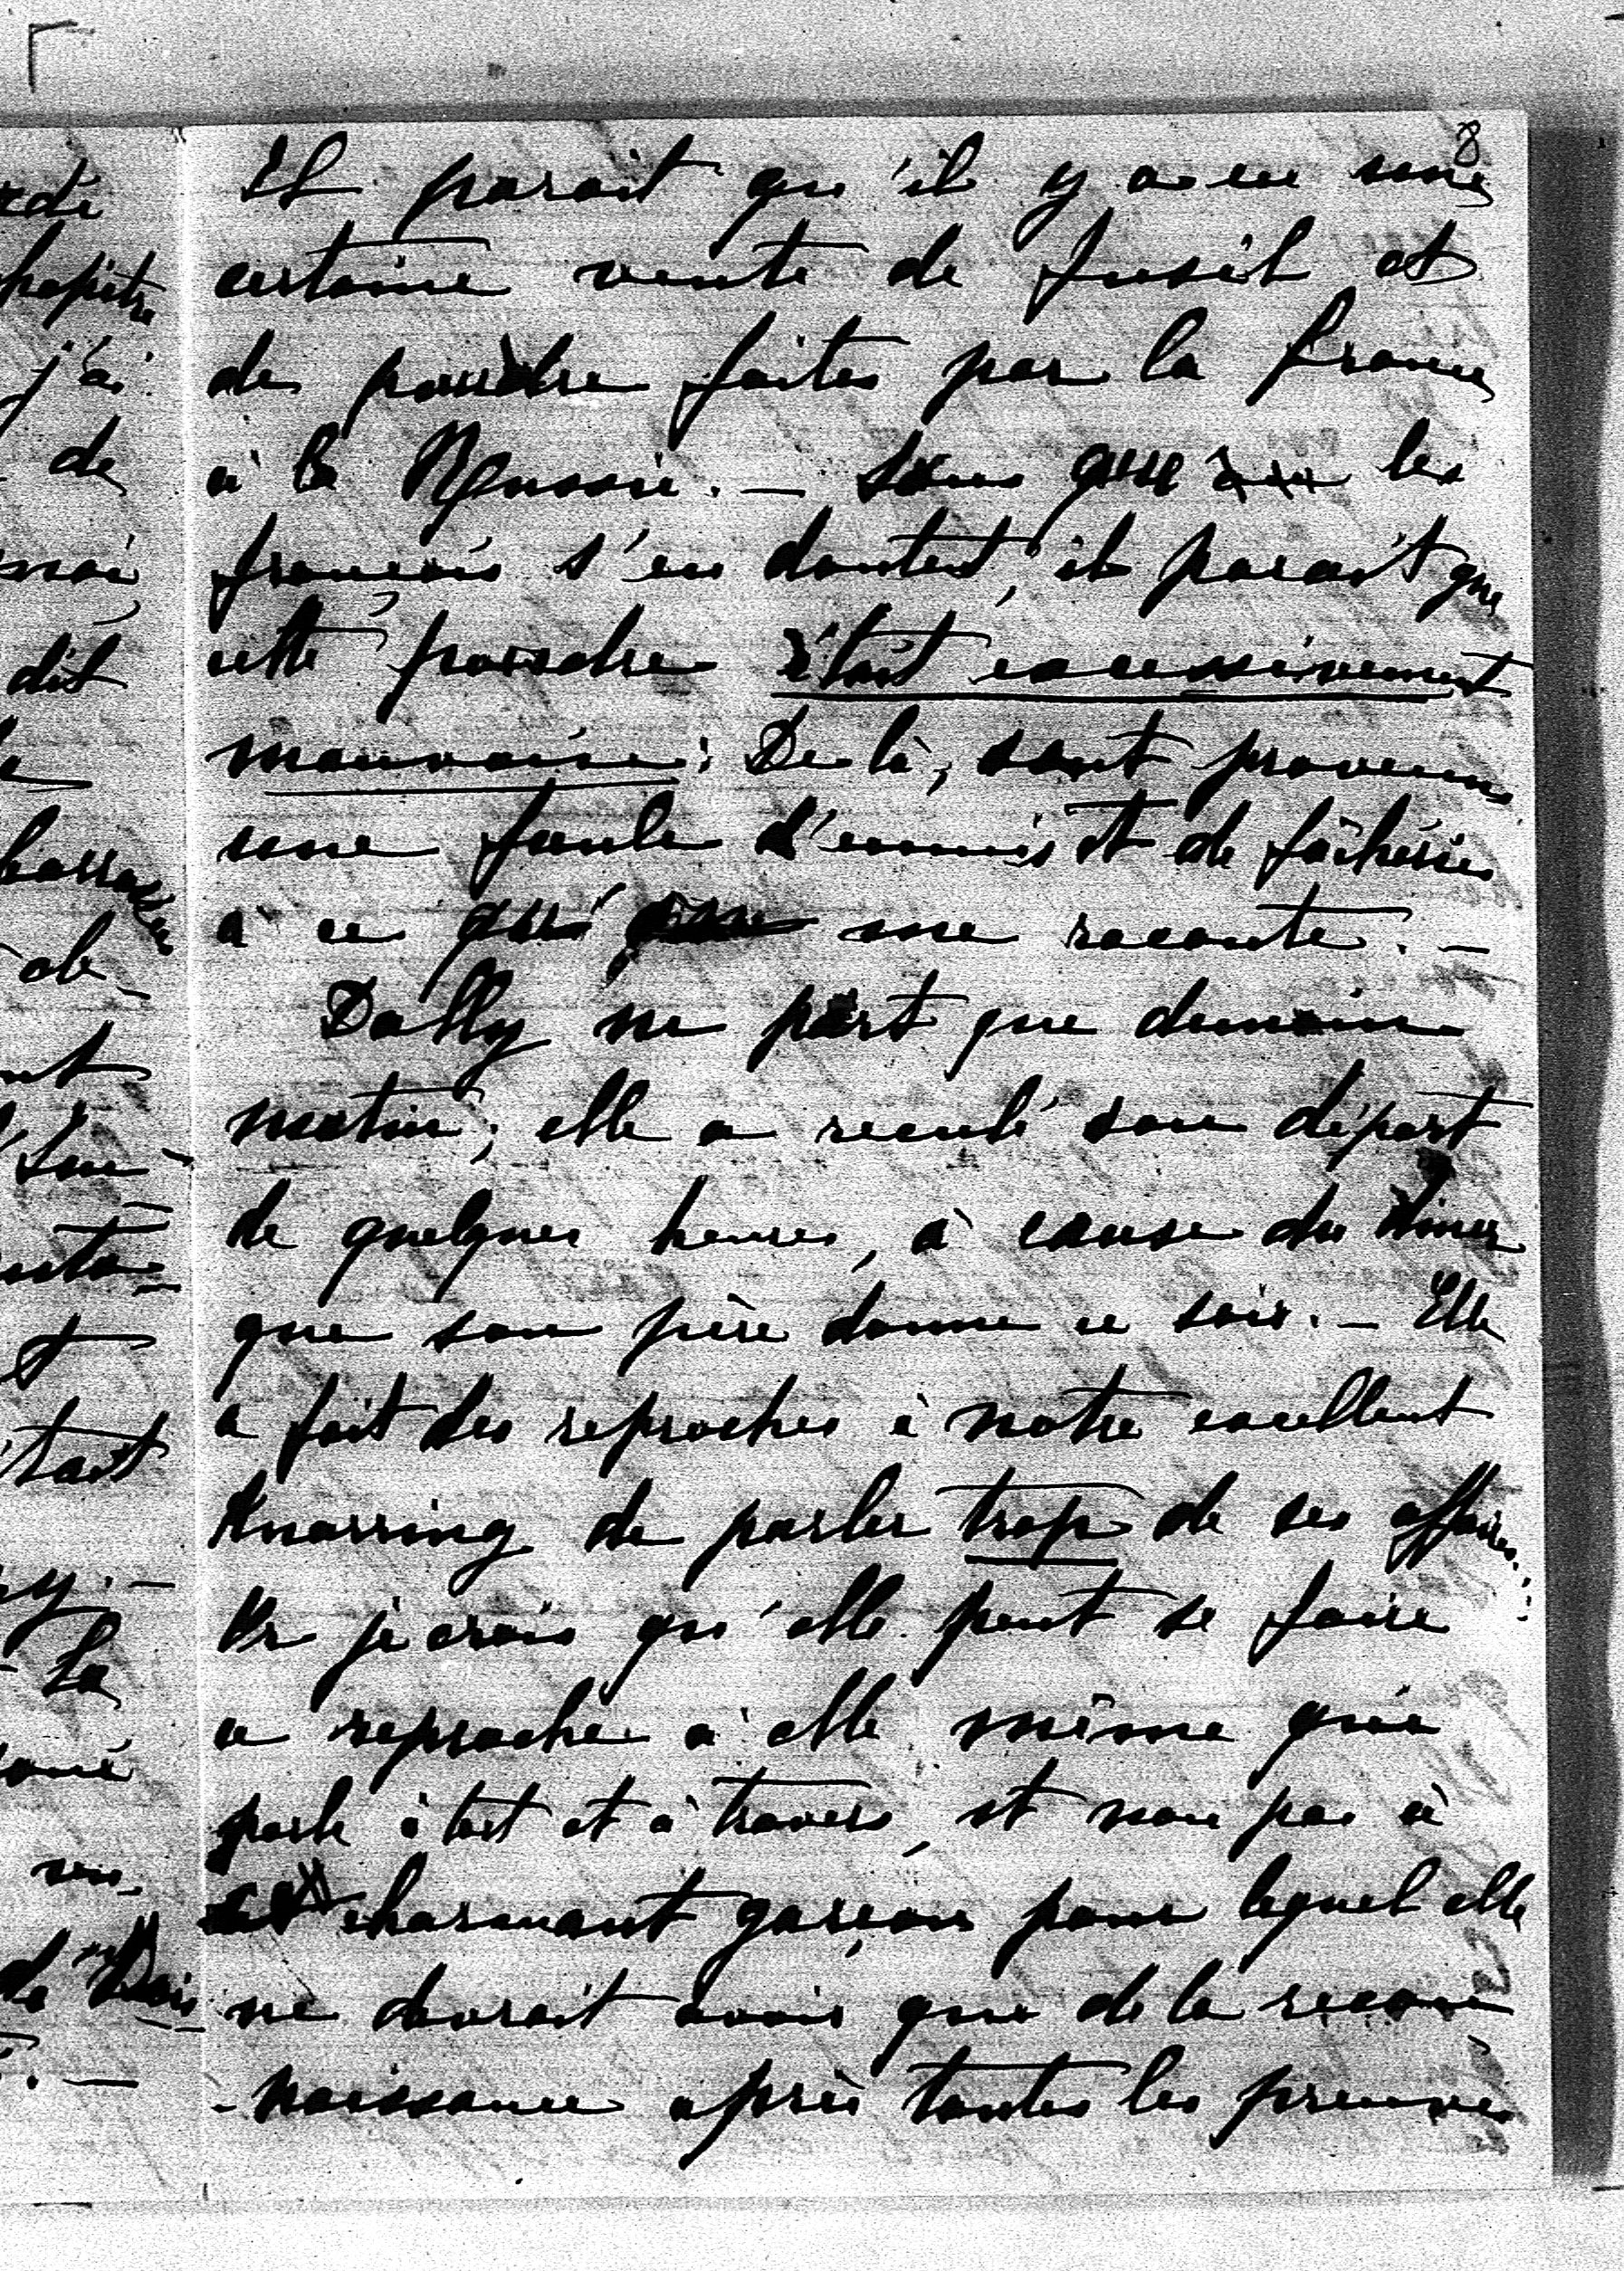 8
Il parait qu'il y a eu une
certaine vente de fusil et
de poudre faites par la France
à la Russie. — Sans que les
français s'en doutent, il parait que
cette poudre était excessivement
mauvaise: De là, sont provenus
une foule d'ennuis et de fâcheries
à ce qui me raconte. —
Dolly ne part que demain
matin; elle a reculé son départ
de quelques heures, à cause du dîner
que son père donne ce soir. — Elle
a fait des reproches à notre excellent
Knorring de parler trop de ses affaires.
Or je crois qu'elle peut se faire
ce reproche à elle même qui
parle à tort et à travers, et non pas à
cet charmant garçon pour lequel elle
ne devrait avoir que de la recon
-naissance après toutes les preuves